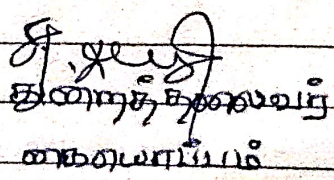 துணைத்தலைவர்
கையொப்பம்